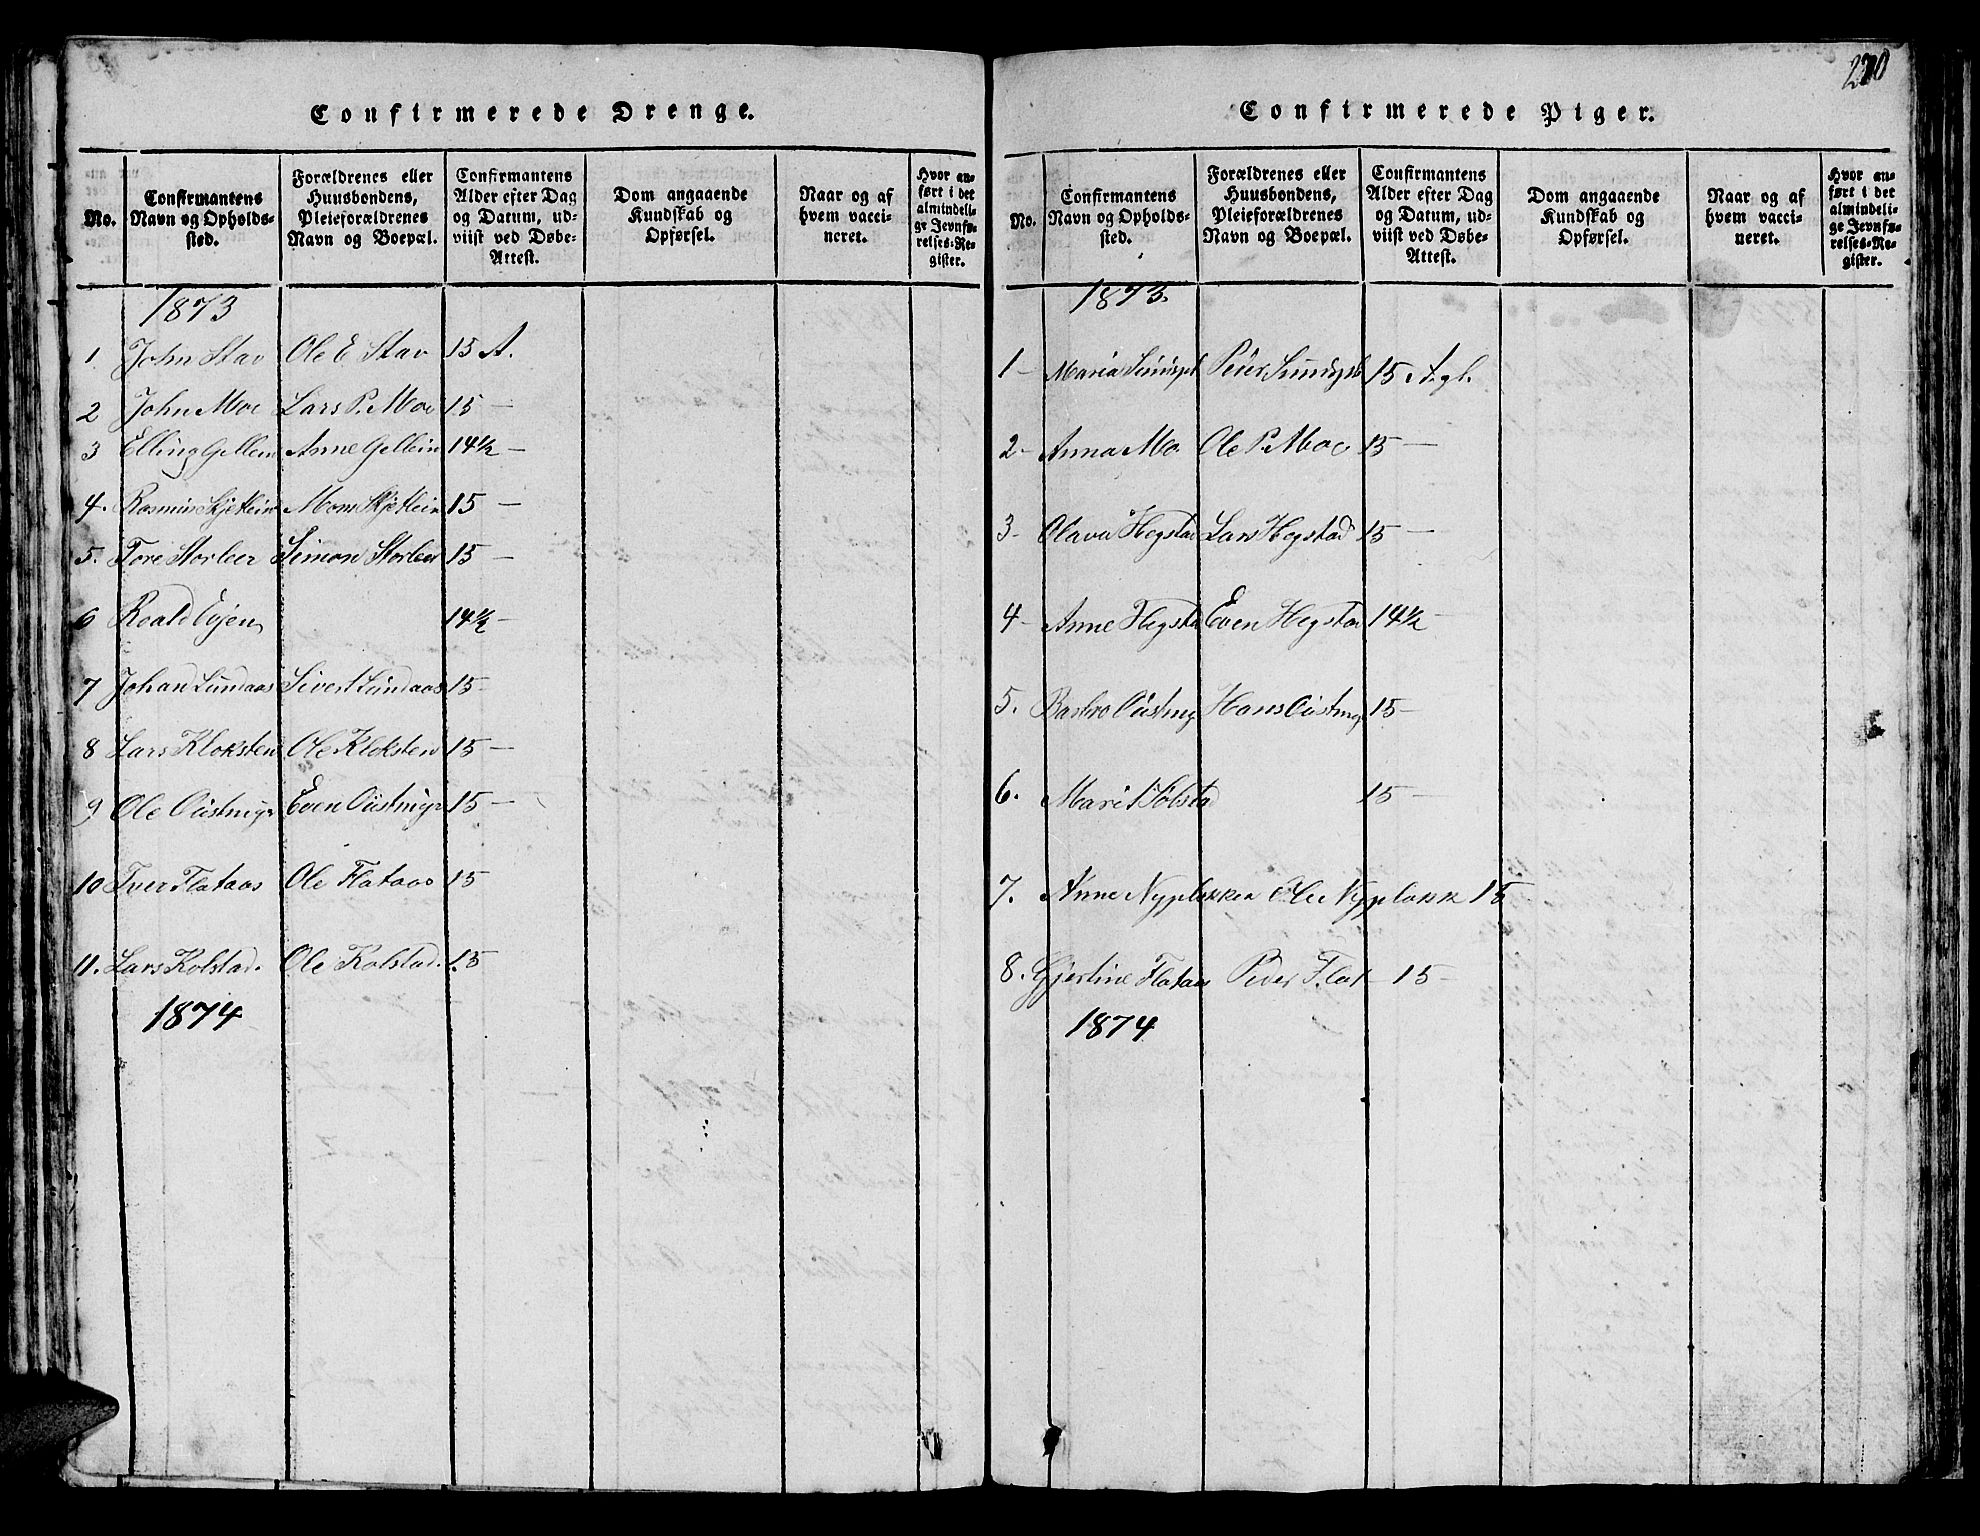 Confirmerede Drenge.
No.
Confirmantens Navn og Opholdssted.
Forældrenes eller Huusbondens, Pleieforældrenes Navn og Boepæl.
Confirmantens Alder efter Dag og Datum, udviist ved Døbe-Attest.
Dom angaaende Kundskab og Opførsel.
Naar og af hvem vaccineret.
Hvor anført i det almindelige Jevnførelses-Register.
1873
1 John Stav Ole E Stav 15 A.
2 John Moe Lars P. Moe 15 —
3 Elling Gellein Anne Gellein 14½ —
4. Rasmus Skjetlein Mons Skjetlein 15 —
5. Tore Storleer Simon Storleer 15 —
6 Roald Eyen 14½ —
7 Johan Lundaas Sivert Lundaas 15 —
8 Lars Kloksten Ole Kloksten 15 —
9 Ole Øustmyr Even Øustmyr 15 —
10 Iver Flataas Ole Flataas 15
11. Lars Kolstad. Ole Kolstad. 15
1874
270
Confirmerede Piger.
No.
Confirmantens Navn og Opholdssted.
Forældrenes eller Huusbondens, Pleieforældrenes Navn og Boepæl.
Confirmantens Alder efter Dag og Datum, udviist ved Døbe-Attest.
Dom angaaende Kundskab og Opførsel.
Naar og af hvem vaccineret.
Hvor anført i det almindelige Jevnførelses-Register.
1873.
1 — Maria Sundspl Peter Sundspl 15 A. gl.
2 — Anna Mo Ole P. Moe 15 —
3 — Olava Hegstad Lars Hegstad 15 —
4 — Anne Hegstad Even Hegstad 14½ —
5. Barbro Øustmyr Hans Øustmyr 15 —
6. Marit Sølstad 15 —
7. Anne Nypløkken Ole Nypløkk 15
8. Gjertine Flataas Peder Flat — 15 —
1874